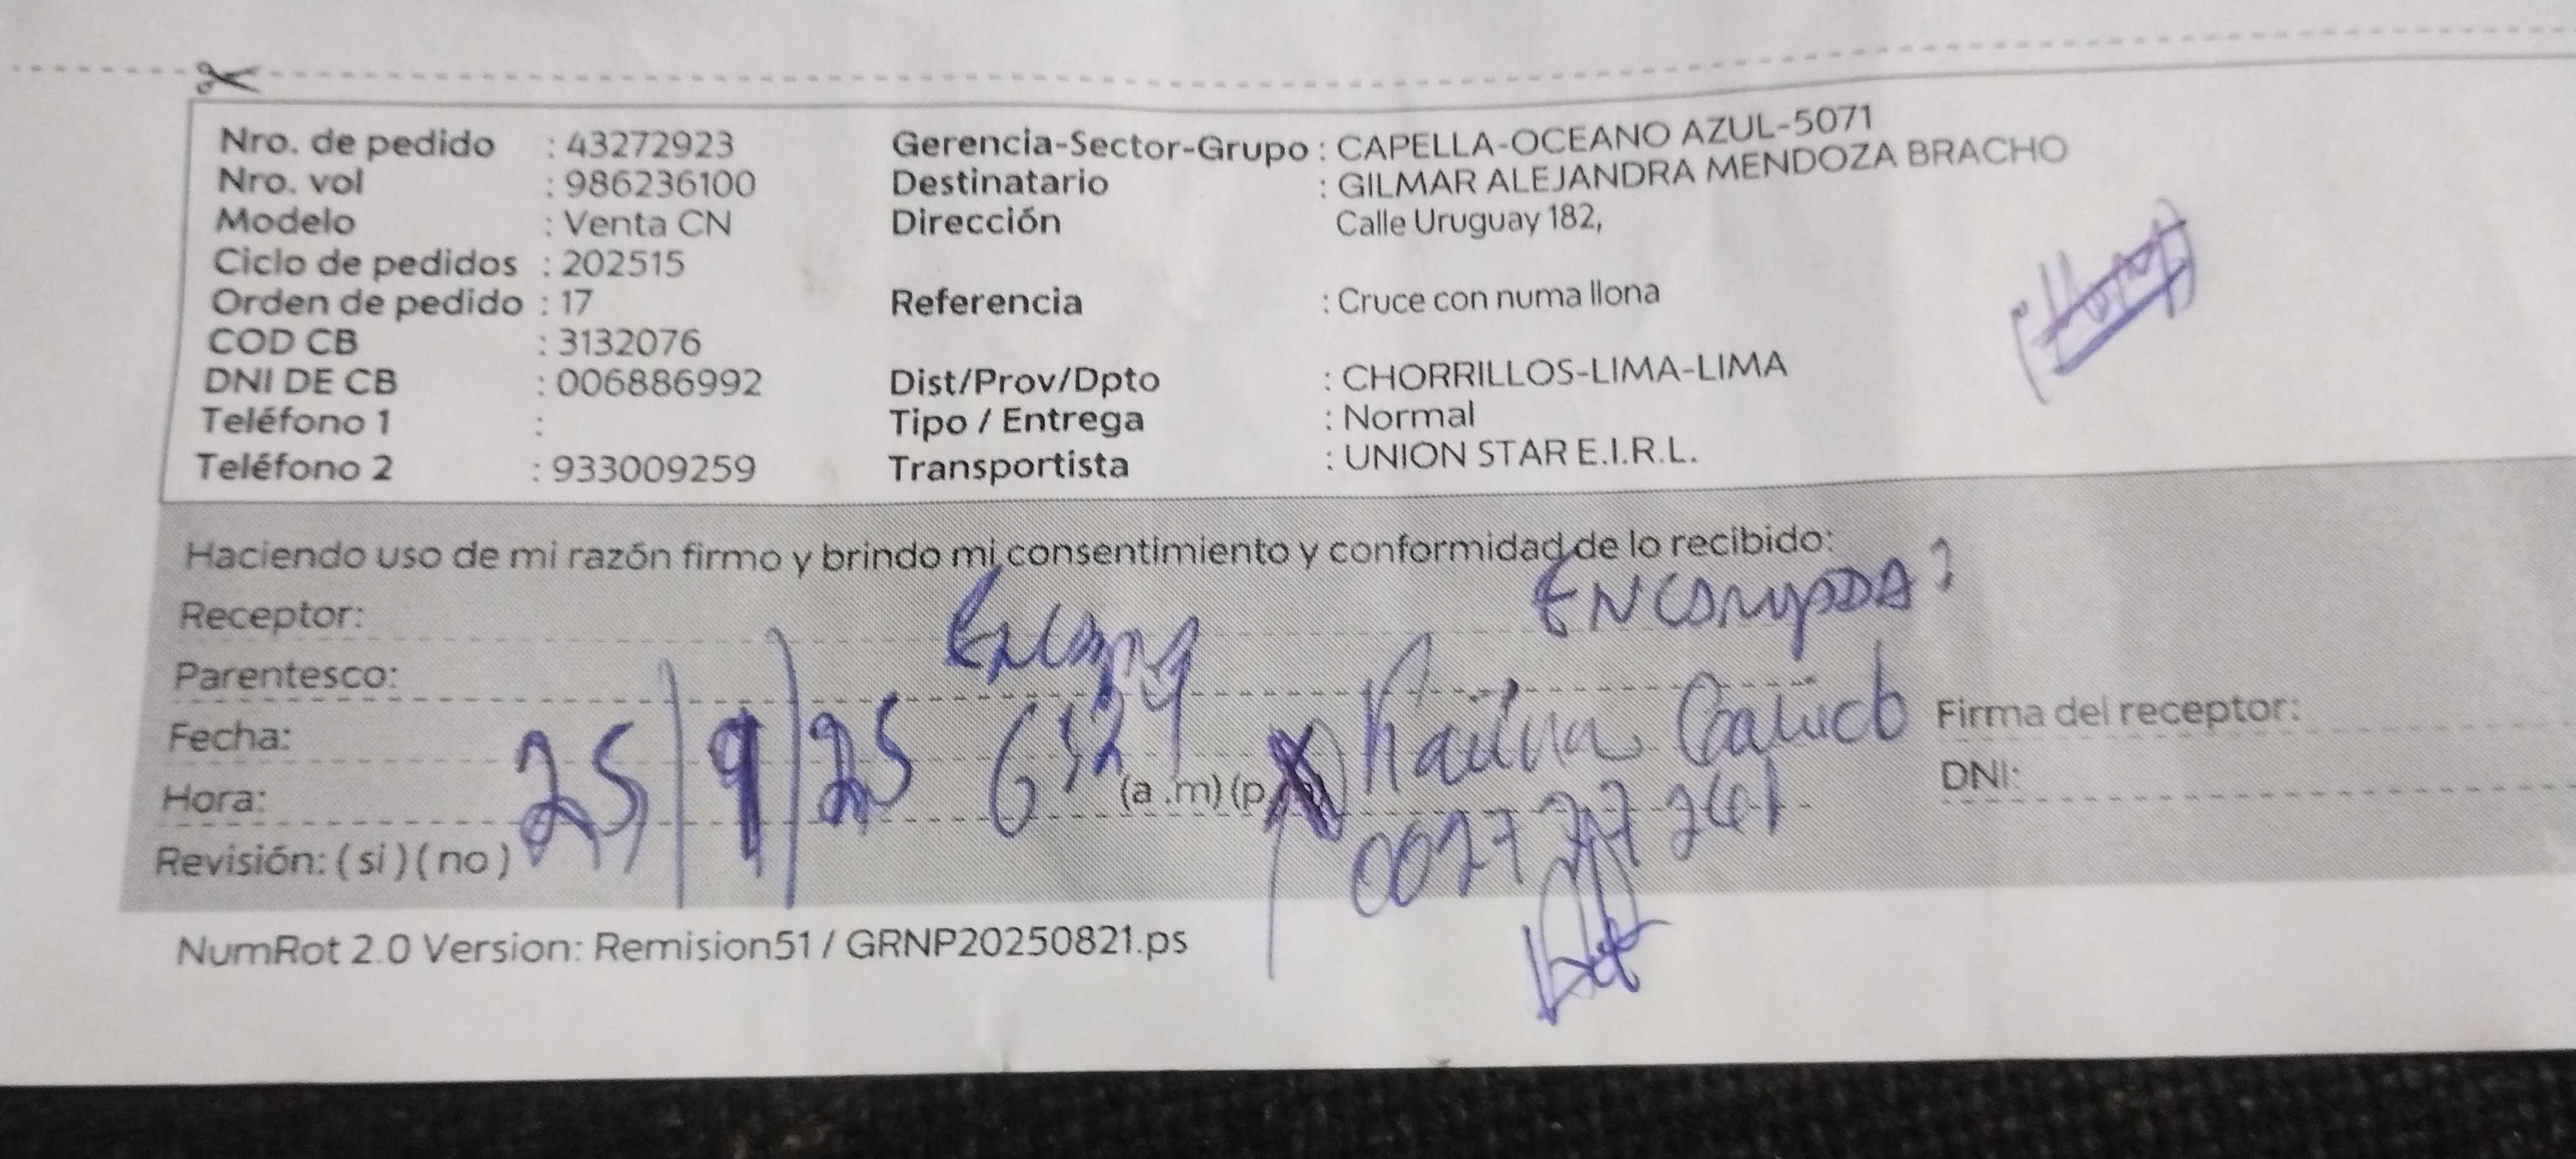 Nro. de pedido : 43272923 Gerencia-Sector-Grupo : CAPELLA-OCEANO AZUL-5071
Nro. vol : 986236100 Destinatario : GILMAR ALEJANDRA MENDOZA BRACHO
Modelo : Venta CN Dirección Calle Uruguay 182,
Ciclo de pedidos : 202515
Orden de pedido : 17 Referencia : Cruce con numa llona
COD CB : 3132076
DNI DE CB : 006886992 Dist/Prov/Dpto : CHORRILLOS-LIMA-LIMA
Teléfono 1 : Tipo / Entrega : Normal
Teléfono 2 : 933009259 Transportista : UNION STAR E.I.R.L.
Haciendo uso de mi razón firmo y brindo mi consentimiento y conformidad de lo recibido:
Receptor:
Parentesco:
Fecha: 25/9/25 Firma del receptor:
Hora: 6:24 (a.m) (p. DNI:
Revisión: ( si ) ( no )
NumRot 2.0 Version: Remision51 / GRNP20250821.ps